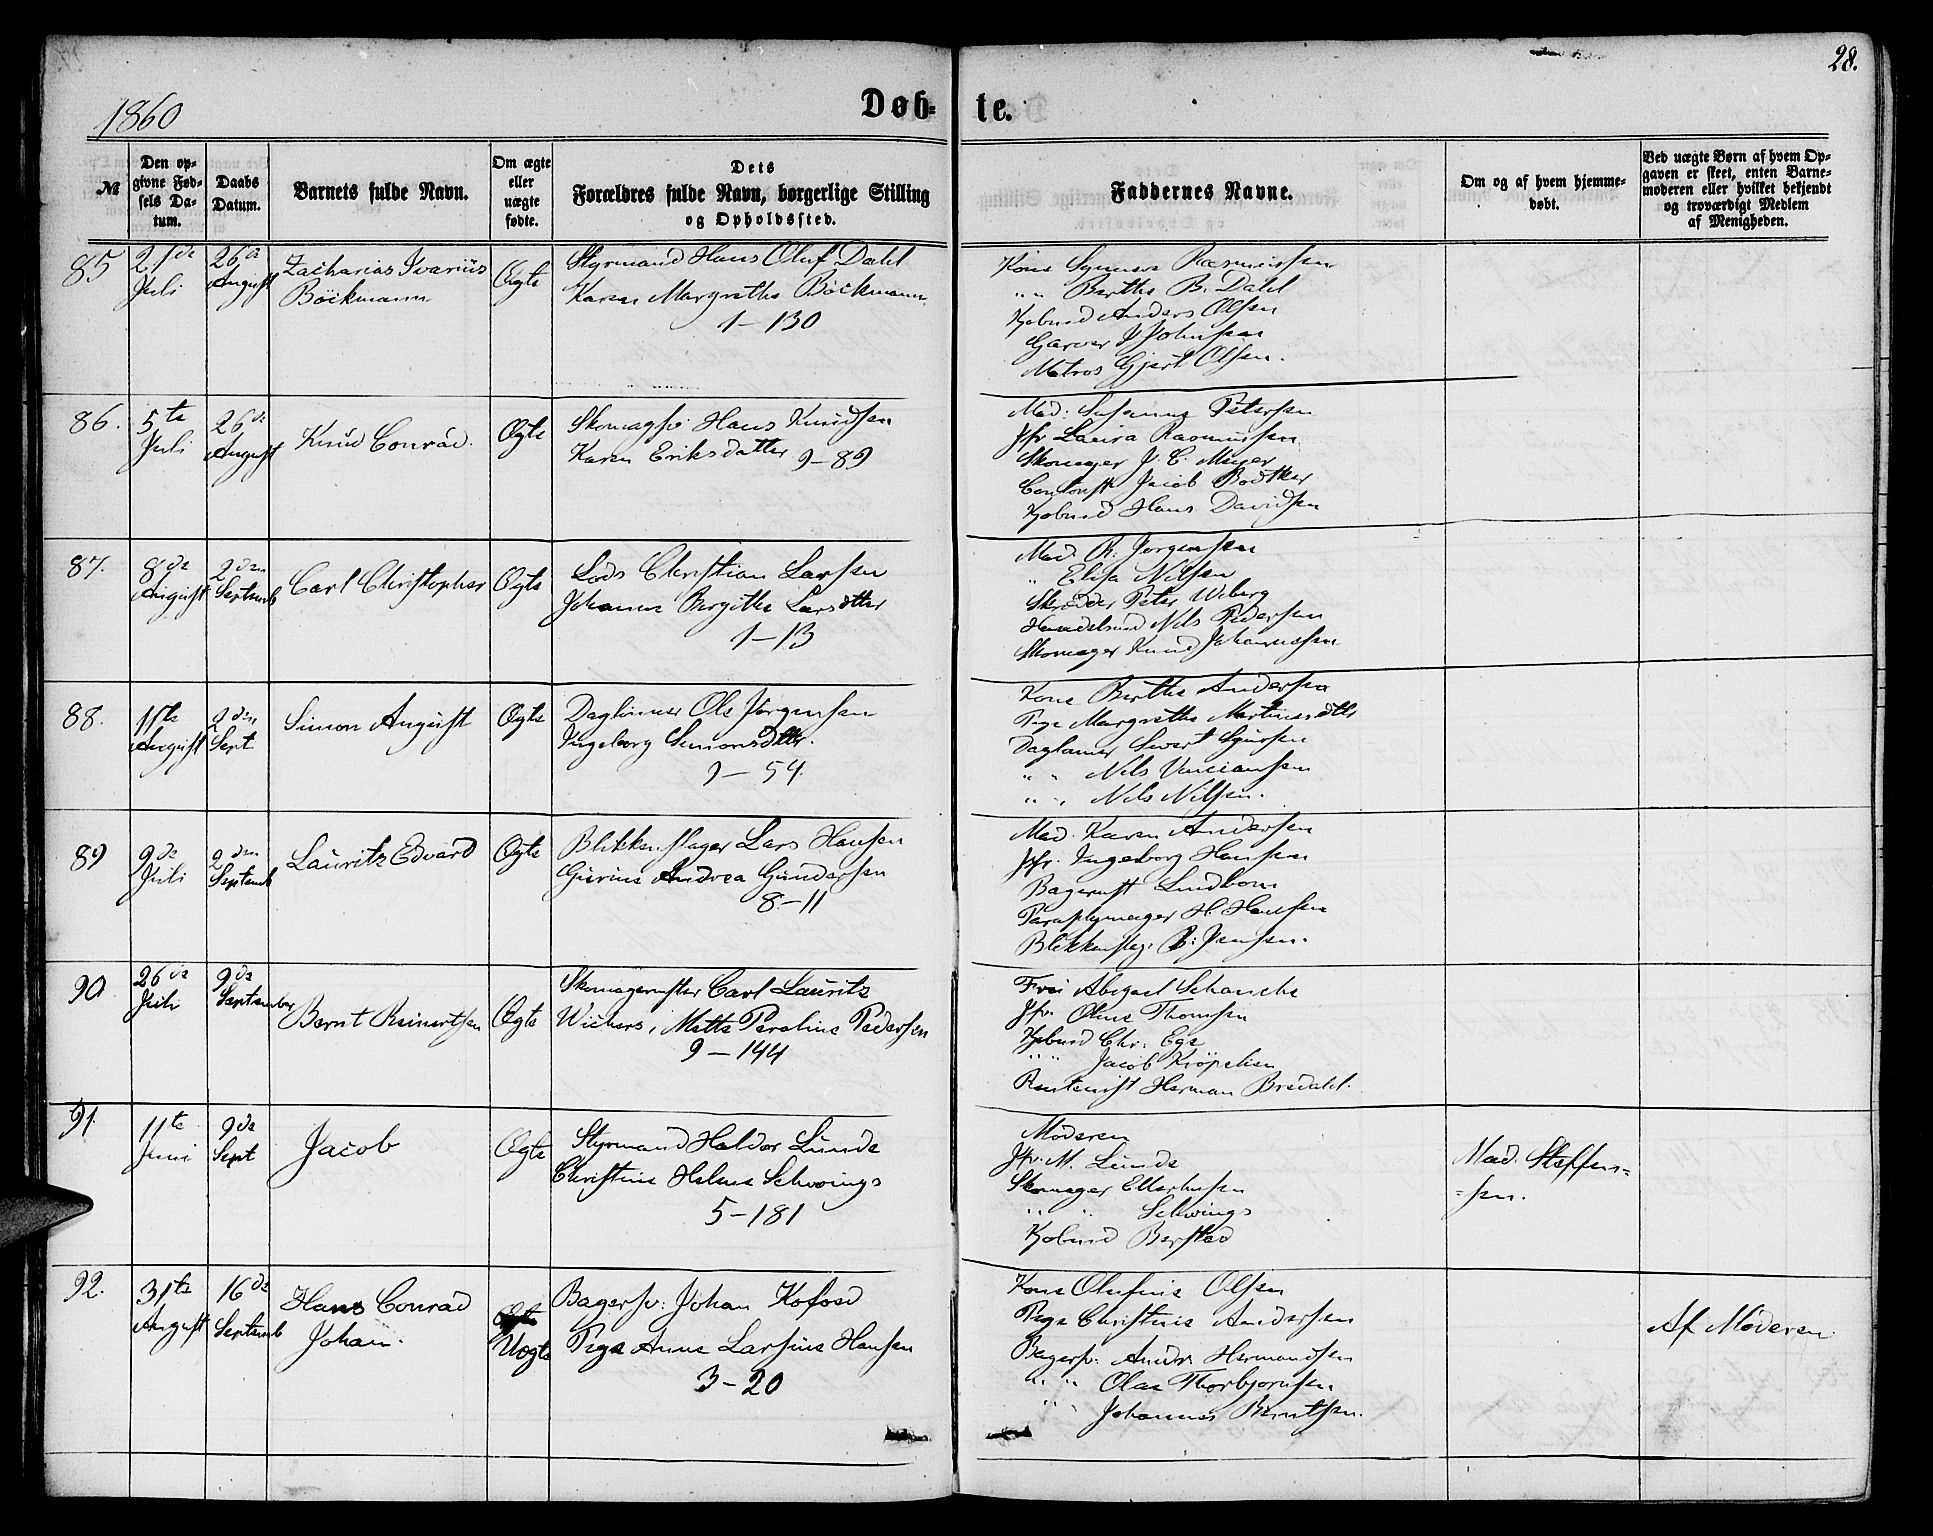 28.
1860
Døb-
te.
№
Den op-
givne Fød-
sels Da-
tum.
Daabs
Datum.
Barnets fulde Navn.
Om ægte
eller
uægte
fødte.
Dets
Forældres fulde Navn, borgerlige Stilling
og Opholdssted.
Faddernes Navne.
Om og af hvem hjemme-
døbt.
Ved uægte Børn af hvem Op-
gaven er skeet, enten Barne-
moderen eller hvilket bekjendt
og troværdigt Medlem
af Menigheden.
85
21de
Juli
26de
August
Zacharias Ivarius
Böckmann
Ægte
Styrmand Hans Oluf Dahl
Karen Margrethe Böckmann
1-130
Kone Rasmussen
" " Berthe B. Dahl
Anders Olsen
Garver J Johnsen
Matros Gjert Olsen.
86.
5te
Juli
26de
August
Knud Conrad.
Ægte
Skomagsv Hans Knudsen
Karen Eriksdatter 9-89
Mad. Susanne Petersen
Jfr Laura Rasmussen
Skomager J. C. Meyer
Contorist Jacob Bödtker
Hans Davidsen
87.
8de
August
2den
Septemb
Carl Christopher
Ægte
Lods Christian Larsen
Johanne Bergithe Larsdtter
1-13
Mad. R. Jørgensen
" Elisa Nilsen
Skræder Peter Wiberg
Handelsmd Nils Pedersen
Skomager Knud Johannessen
88.
11te
August
2den
Sept
Simon August
Ægte
Daglönner Ole Jørgensen
Ingeborg Simonsdttr.
9-54.
Kone Berthe Andersen
Pige Margrethe Martinusdttr
Daglønner Sivert
" " Nils
" " Nils Nilsen.
89
9de
Juli
2den
Septemb
Lauritz Edvard
Ægte
Blikkenslager Lars Hansen
Gurine Andrea Gundersen
8-11
Mad. Karen Andersen
Jfr. Ingeborg Hansen
Lindbom
Paraplymager H. Hansen
Blikkenslag. B: Jensen.
90
26de
Juli
9de
September
Bernt Reinertsen
Ægte
Skomagermster Carl Lauritz
Wichers, Mette Peroline Pedersen
9-144
Frú Abigael Schanche
Jfr. Oline Thomsen
Kjøbmd Chr. Ege
" " Jacob Kröpelien
Herman Bredahl.
91.
11te
Juni
9de
Sept
Jacob
Ægte
Styrmand Haldor Lunde
Christine Helene Schwings
5-181
Moderen
Jfr. M. Lunde
Skomager Ellerhusen
" " Schwings
Kjøbmd Berstad
Mad. Steffen-
-sen.
92.
31te
August
16de
Septemb
Hans Conrad
Johan.
Uægte
Bagersv: Johan Kofoed
Pige Anne Larsine Hansen
3-20
Kone Olufine Olsen
Pige Christine Andersen
Bagersv. Andr. Hermandsen
" " Olai Thorbjørnsen
" " Johannes Berntsen.
Af Moderen